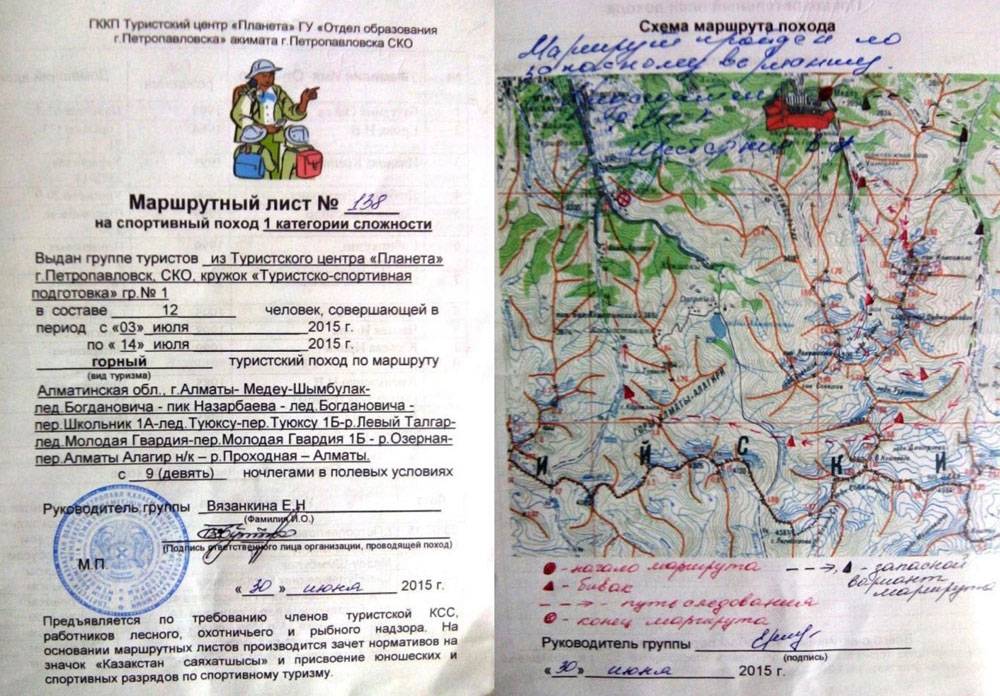 ГККП Туристский центр «Планета» ГУ «Отдел образования
г.Петропавловска» акимата г.Петропавловска СКО
Маршрутный лист № 138
на спортивный поход 1 категории сложности
Выдан группе туристов из Туристского центра «Планета»
г.Петропавловск, СКО, кружок «Туристско-спортивная
подготовка» гр.№ 1
в составе 12 человек, совершающей в
период с «03» июля 2015 г.
по « 14» июля 2015 г.
горный туристский поход по маршруту
(вид туризма)
Алматинская обл., г.Алматы- Медеу-Шымбулак-
лед.Богдановича - пик Назарбаева - лед.Богдановича -
пер.Школьник 1А-лед.Туюксу-пер.Туюксу 1Б-р.Левый Талгар-
лед.Молодая Гвардия-пер.Молодая Гвардия 1Б - р.Озерная-
пер.Алматы Алагир н/к – р.Проходная – Алматы.
с 9 (девять) ночлегами в полевых условиях
Руководитель группы Вязанкина Е.Н
(Фамилия И.О.)
(Подпись ответственного лица организации, проводящей поход)
М.П.
« 30 » июня 2015 г.
Предъявляется по требованию членов туристской КСС,
работников лесного, охотничьего и рыбного надзора. На
основании маршрутных листов производится зачет нормативов на
значок «Казакстан саяхатшысы» и присвоение юношеских и
спортивных разрядов по спортивному туризму.
Схема маршрута похода
Маршрут пройден по
запасному варианту.
И Й С К И
- начало маршрута
- бивак
- путь следования
- конец маршрута
- запасной
вариант
маршрута
Руководитель группы
(подпись)
« 30 » июня 2015 г.